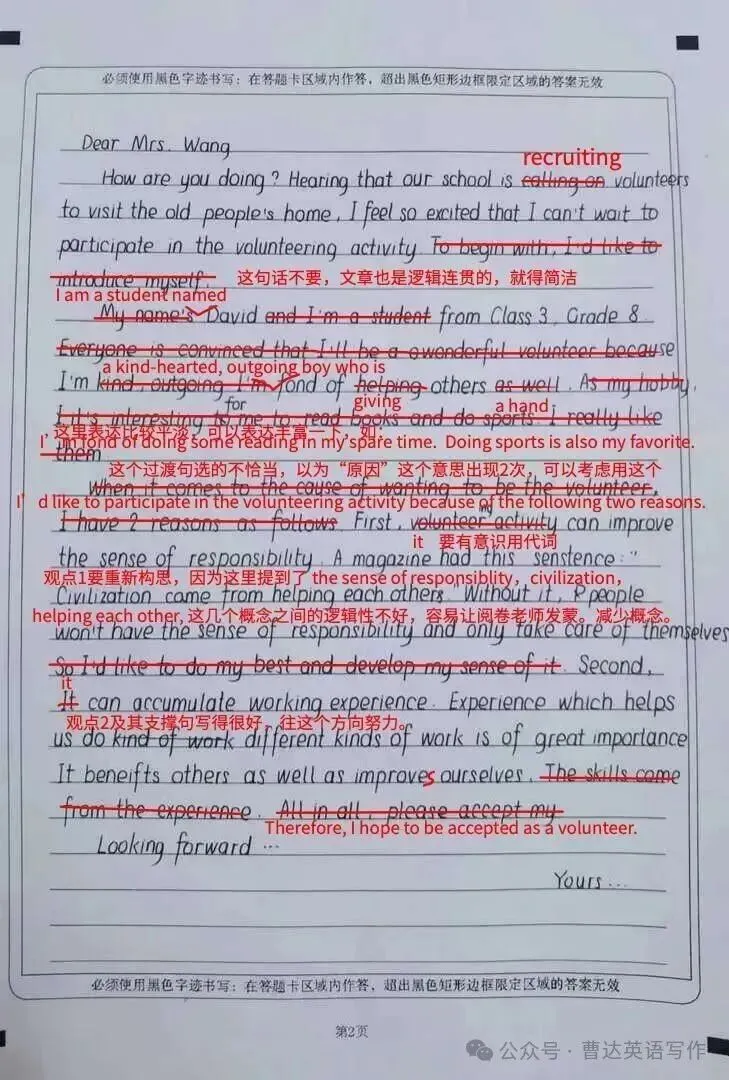 必须使用黑色字迹书写：在答题卡区域内作答，超出黑色矩形边框限定区域的答案无效
Dear Mrs. Wang
recruiting
How are you doing? Hearing that our school is calling on volunteers
to visit the old people's home, I feel so excited that I can't wait to
participate in the volunteering activity. To begin with, I'd like to
introduce myself. 这句话不要，文章也是逻辑连贯的，就得简洁
I am a student named
My name's David and I'm a student from Class 3, Grade 8.
Everyone is convinced that I'll be a wonderful volunteer because
a kind-hearted, outgoing boy who is
I'm kind, outgoing I'm fond of helping others as well. As my hobby,
for giving a hand
I it's interesting to me to read books and do sports. I really like
这里表达比较平淡，可以表达丰富一点，如：
I'm fond of doing some reading in my spare time. Doing sports is also my favorite.
them
这个过渡句选的不恰当，以为“原因”这个意思出现2次，可以考虑用这个
When it comes to the cause of wanting to be the volunteer,
I'd like to participate in the volunteering activity because of the following two reasons.
ing
I have 2 reasons as follows. First, volunteer activity can improve
it 要有意识用代词
the sense of responsibility. A magazine had this sentence: "
观点1要重新构思，因为这里提到了 the sense of responsiblity，civilization，
Civilization came from helping each others. Without it, people
helping each other, 这几个概念之间的逻辑性不好，容易让阅卷老师发蒙。减少概念。
won't have the sense of responsibility and only take care of themselves
So I'd like to do my best and develop my sense of it. Second,
it
It can accumulate working experience. Experience which helps
观点2及其支撑句写得很好，往这个方向努力。
us do kind of work different kinds of work is of great importance
It beneifts others as well as improves ourselves. The skills come
from the experience. All in all, please accept my
Therefore, I hope to be accepted as a volunteer.
Looking forward ...
Yours ...
必须使用黑色字迹书写：在答题卡区域内作答，超出黑色矩形边框限定区域的答案无效
第2页
公众号·曹达英语写作